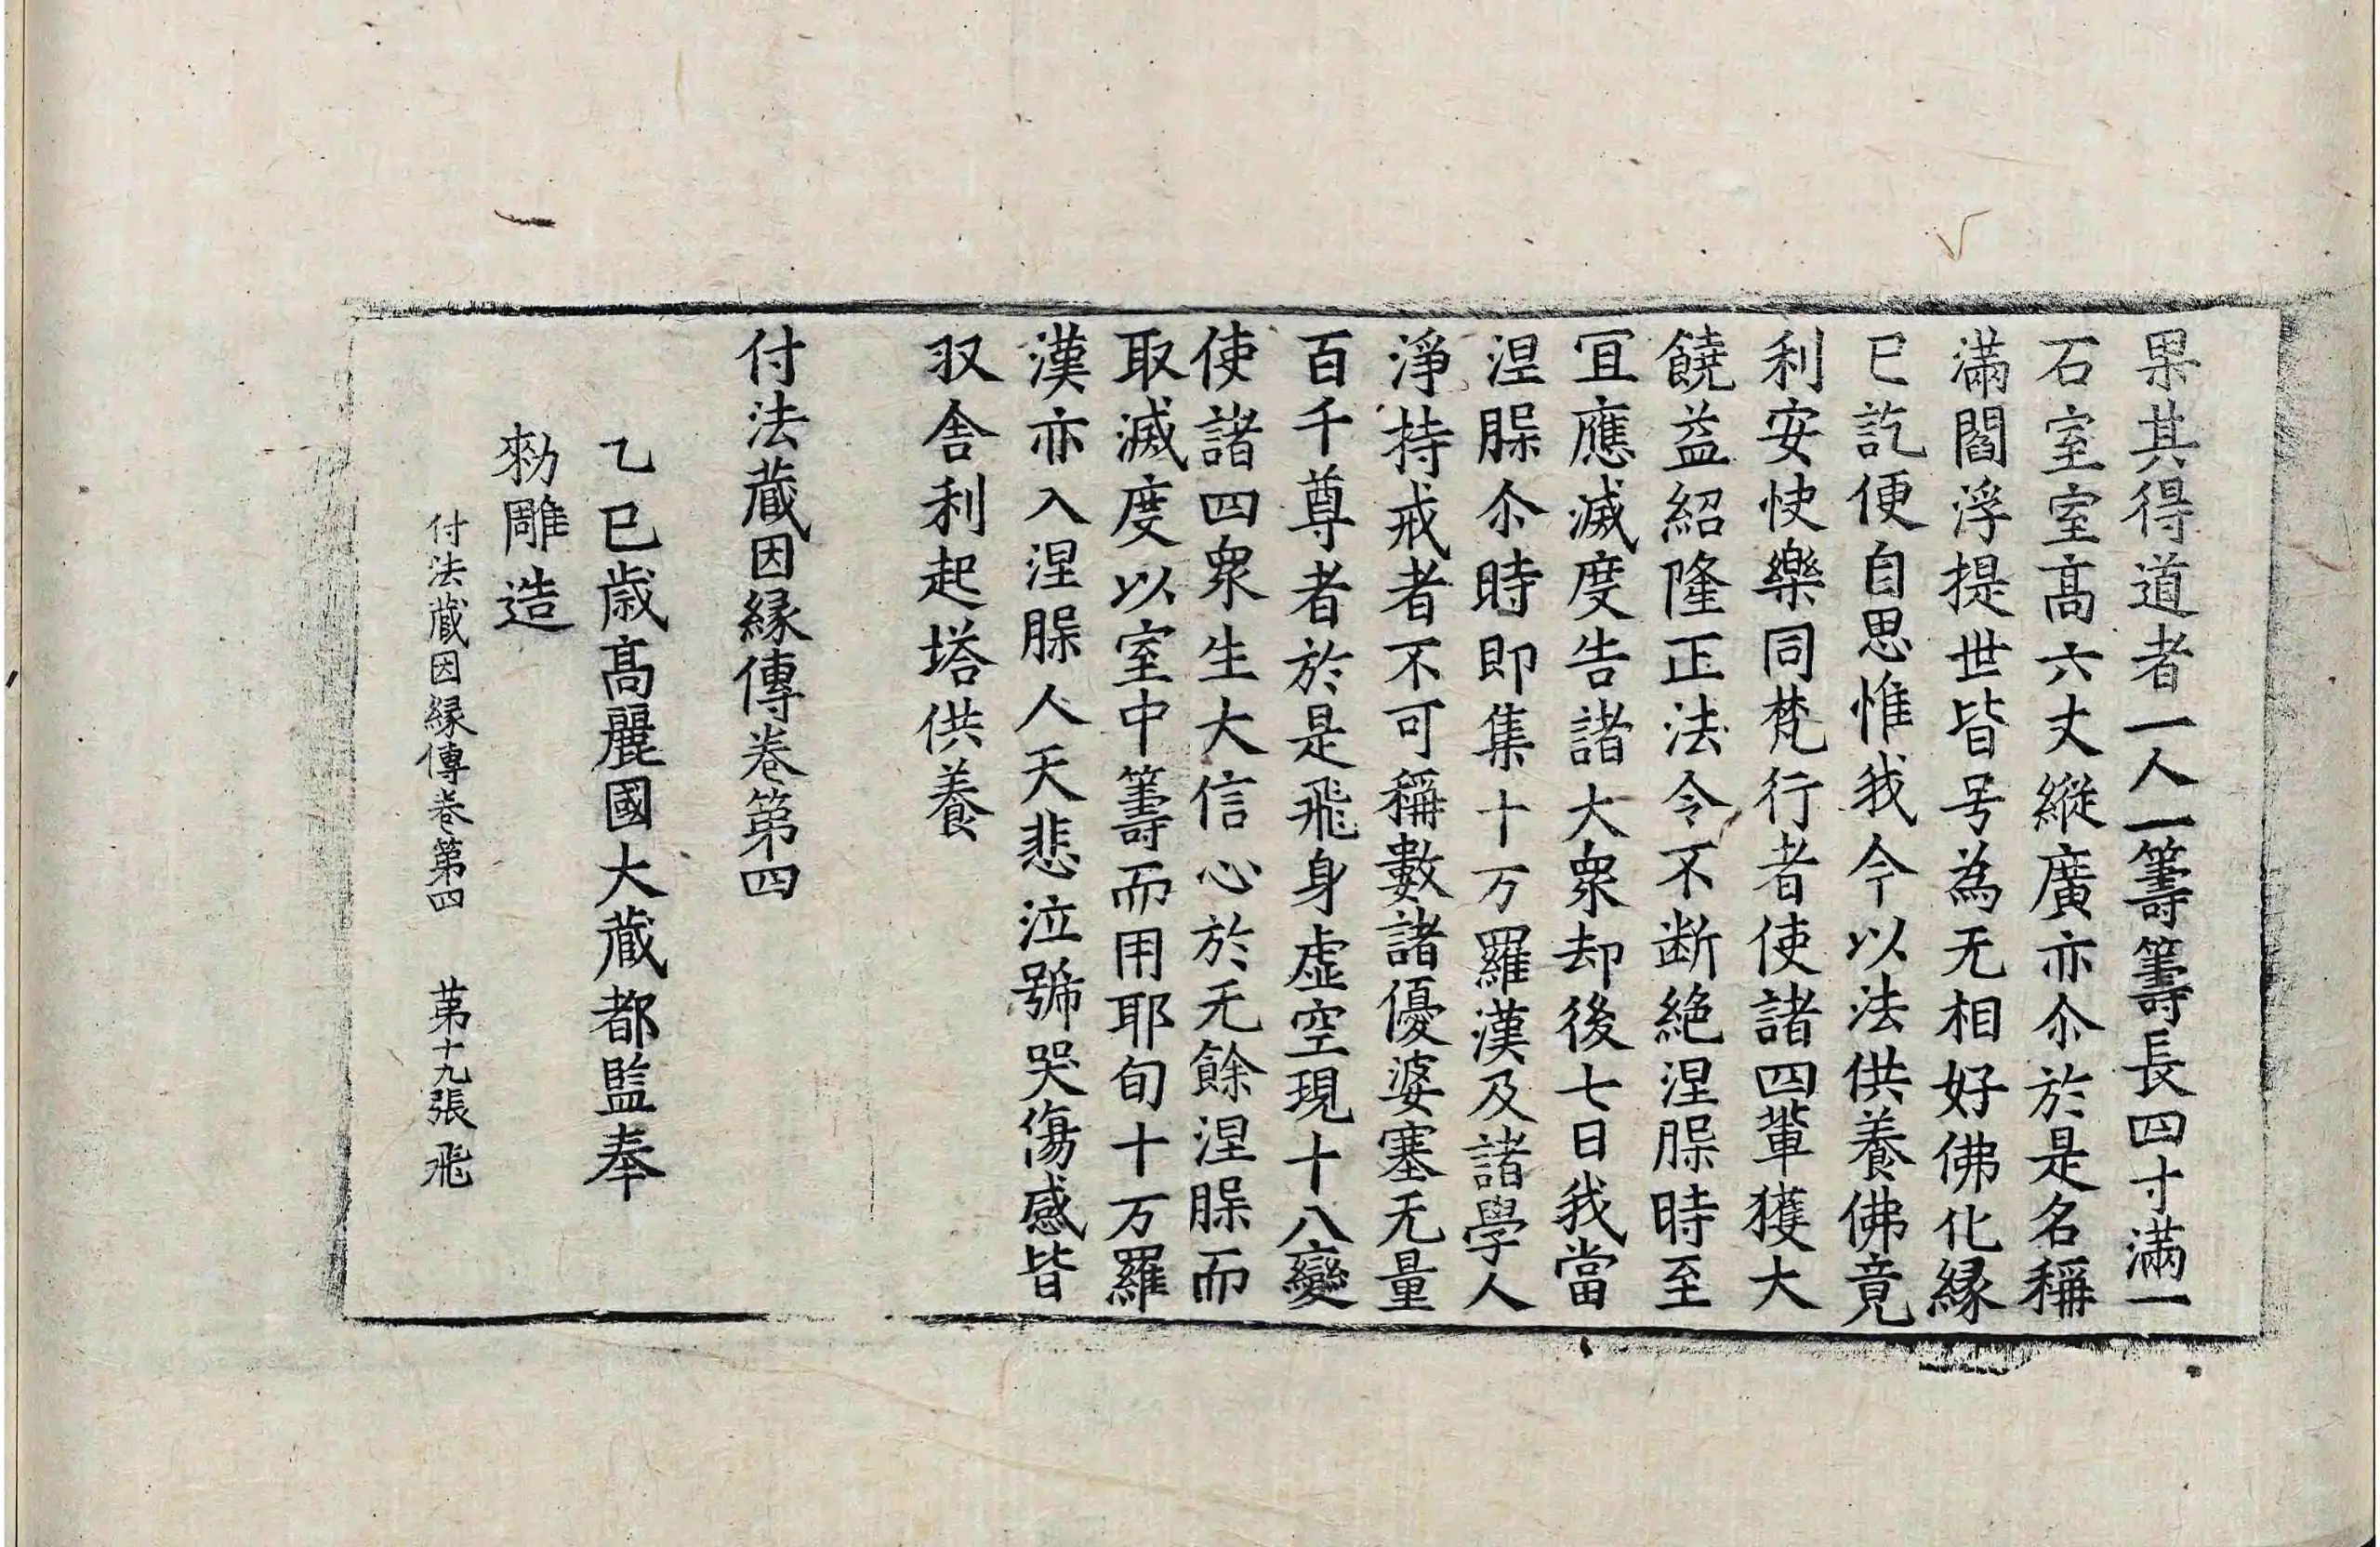 果其得道者一人一籌籌長四寸滿一
石室室高六丈縱廣亦尒於是名稱
滿閻浮提世皆号為无相好佛化縁
已訖便自思惟我今以法供養佛竟
利安快樂同梵行者使諸四輩獲大
饒益紹隆正法令不断絶涅脲時至
冝應滅度告諸大衆却後七日我當
涅脲尒時即集十万羅漢及諸學人
淨持戒者不可稱數諸優婆塞无量
百千尊者於是飛身虛空現十八變
使諸四衆生大信心於无餘涅脲而
取滅度以室中籌而用耶旬十万羅
漢亦入涅脲人天悲泣號哭傷感皆
収舎利起塔供養
付法蔵因縁傳卷第四
乙巳歳髙麗國大蔵都監奉
勑雕造
付法蔵因縁傳卷第四 苐十九張 飛